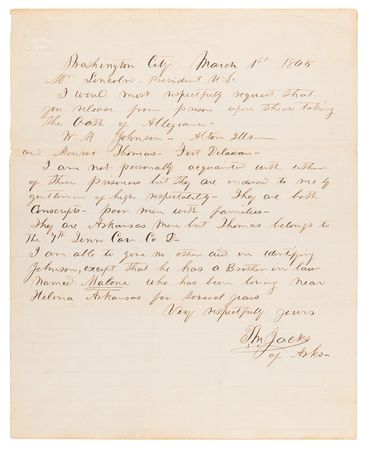 Washington City March 1st 1865
Mr Lincoln - President U.S.
I would most respectfully request that
you release from prison upon their taking
the Oath of Allegiance -
W. M Johnson - Alton Ills -
and Monroe Thomas - Fort Delawar -
I am not personally acquainted with either
of these Prisoners but they are endorsed to me by
gentlemen of high respectability - They are both
Conscripts - poor men with families -
They are Arkansas Men but Thomas belongs to
the 7th Tenn Cav Co D -
I am able to give no other aid in identifying
Johnson, except that he has a Brother in law
named Malone who has been living near
Helena Arkansas for several years
Very respectfully yours
T M Jacks
of Arks -